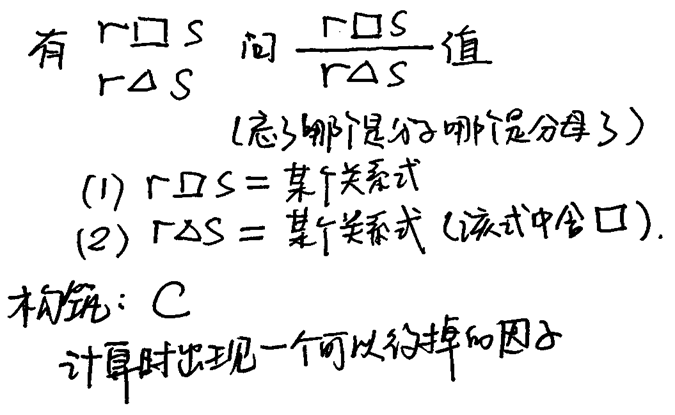 有 r□s 问 r□s / r△s 值
r△s
(忘了哪个是分子哪个是分母了)
(1) r□s = 某个关系式
(2) r△s = 某个关系式 (该式中含□).
构筑: C
计算时出现一个可以约掉的因子